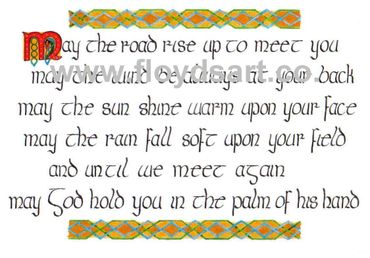 May the road rise up to meet you
may the wind be always at your back
www.floydsart.co.
may the sun shine warm upon your face
may the rain fall soft upon your field
and until we meet again
may God hold you in the palm of his hand